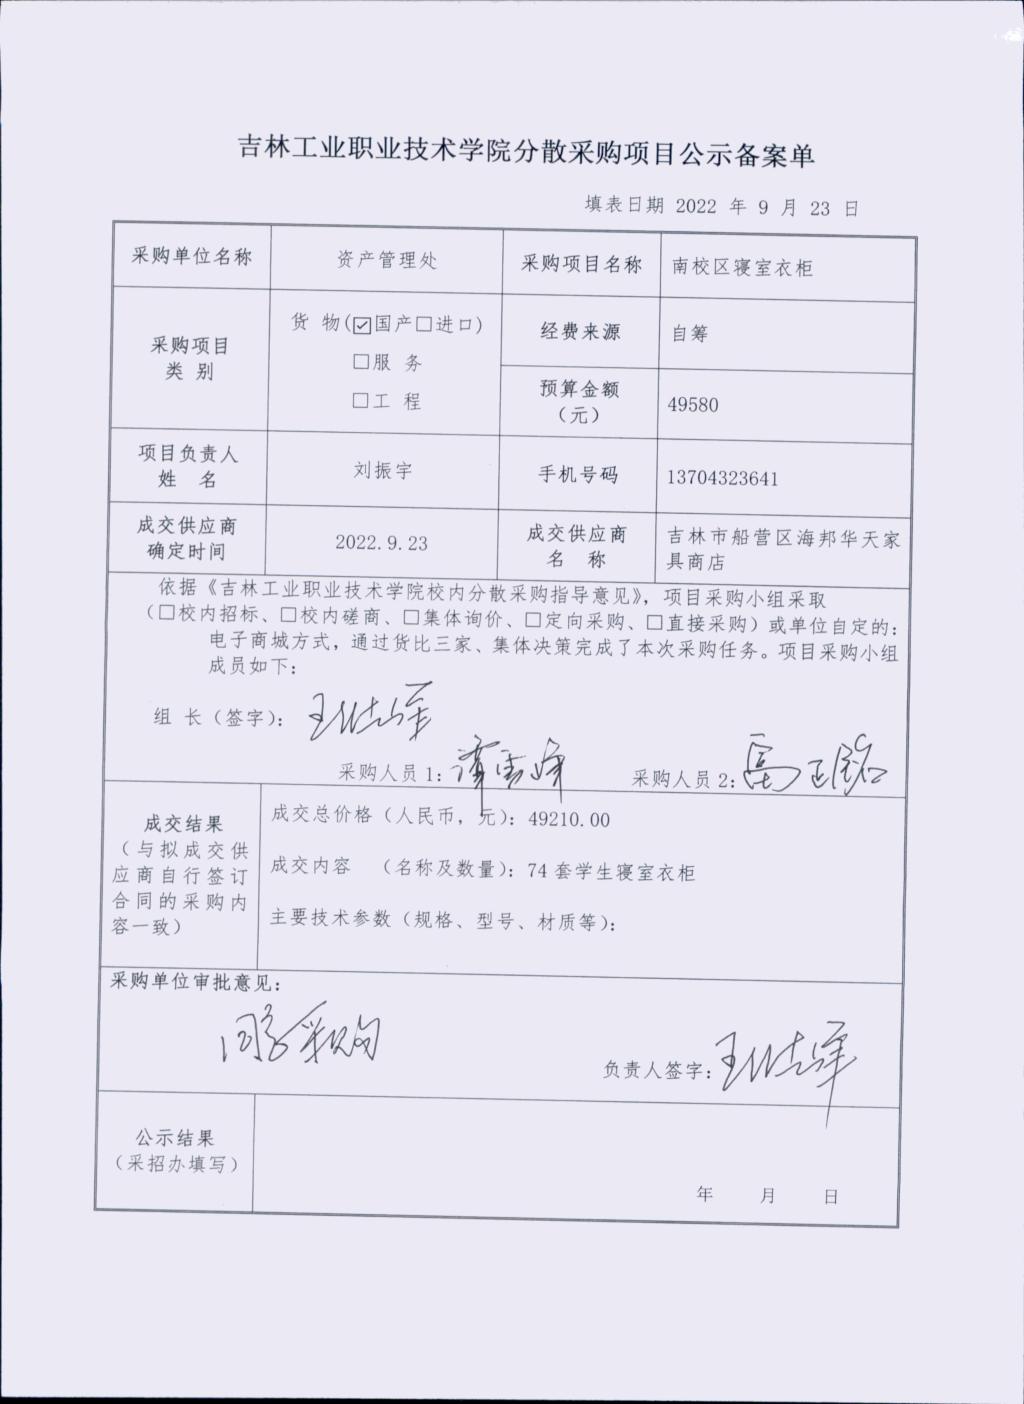 吉林工业职业技术学院分散采购项目公示备案单
填表日期 2022 年 9 月 23 日
采购单位名称 资产管理处 采购项目名称 南校区寝室衣柜
采购项目
类 别
货 物(☑国产□进口)
□服 务
□工 程
经费来源 自筹
预算金额
（元）
49580
项目负责人
姓 名
刘振宇
手机号码 13704323641
成交供应商
确定时间
2022.9.23
成交供应商
名 称
吉林市船营区海邦华天家
具商店
依据《吉林工业职业技术学院校内分散采购指导意见》，项目采购小组采取
（□校内招标、□校内磋商、□集体询价、□定向采购、□直接采购）或单位自定的：
电子商城方式，通过货比三家、集体决策完成了本次采购任务。项目采购小组
成员如下：
组 长（签字）：
采购人员 1： 采购人员 2：
成交结果
（与拟成交供
应商自行签订
合同的采购内
容一致）
成交总价格（人民币，元）：49210.00
成交内容 （名称及数量）：74 套学生寝室衣柜
主要技术参数（规格、型号、材质等）：
采购单位审批意见：
同意采购
负责人签字：
公示结果
（采招办填写）
年 月 日